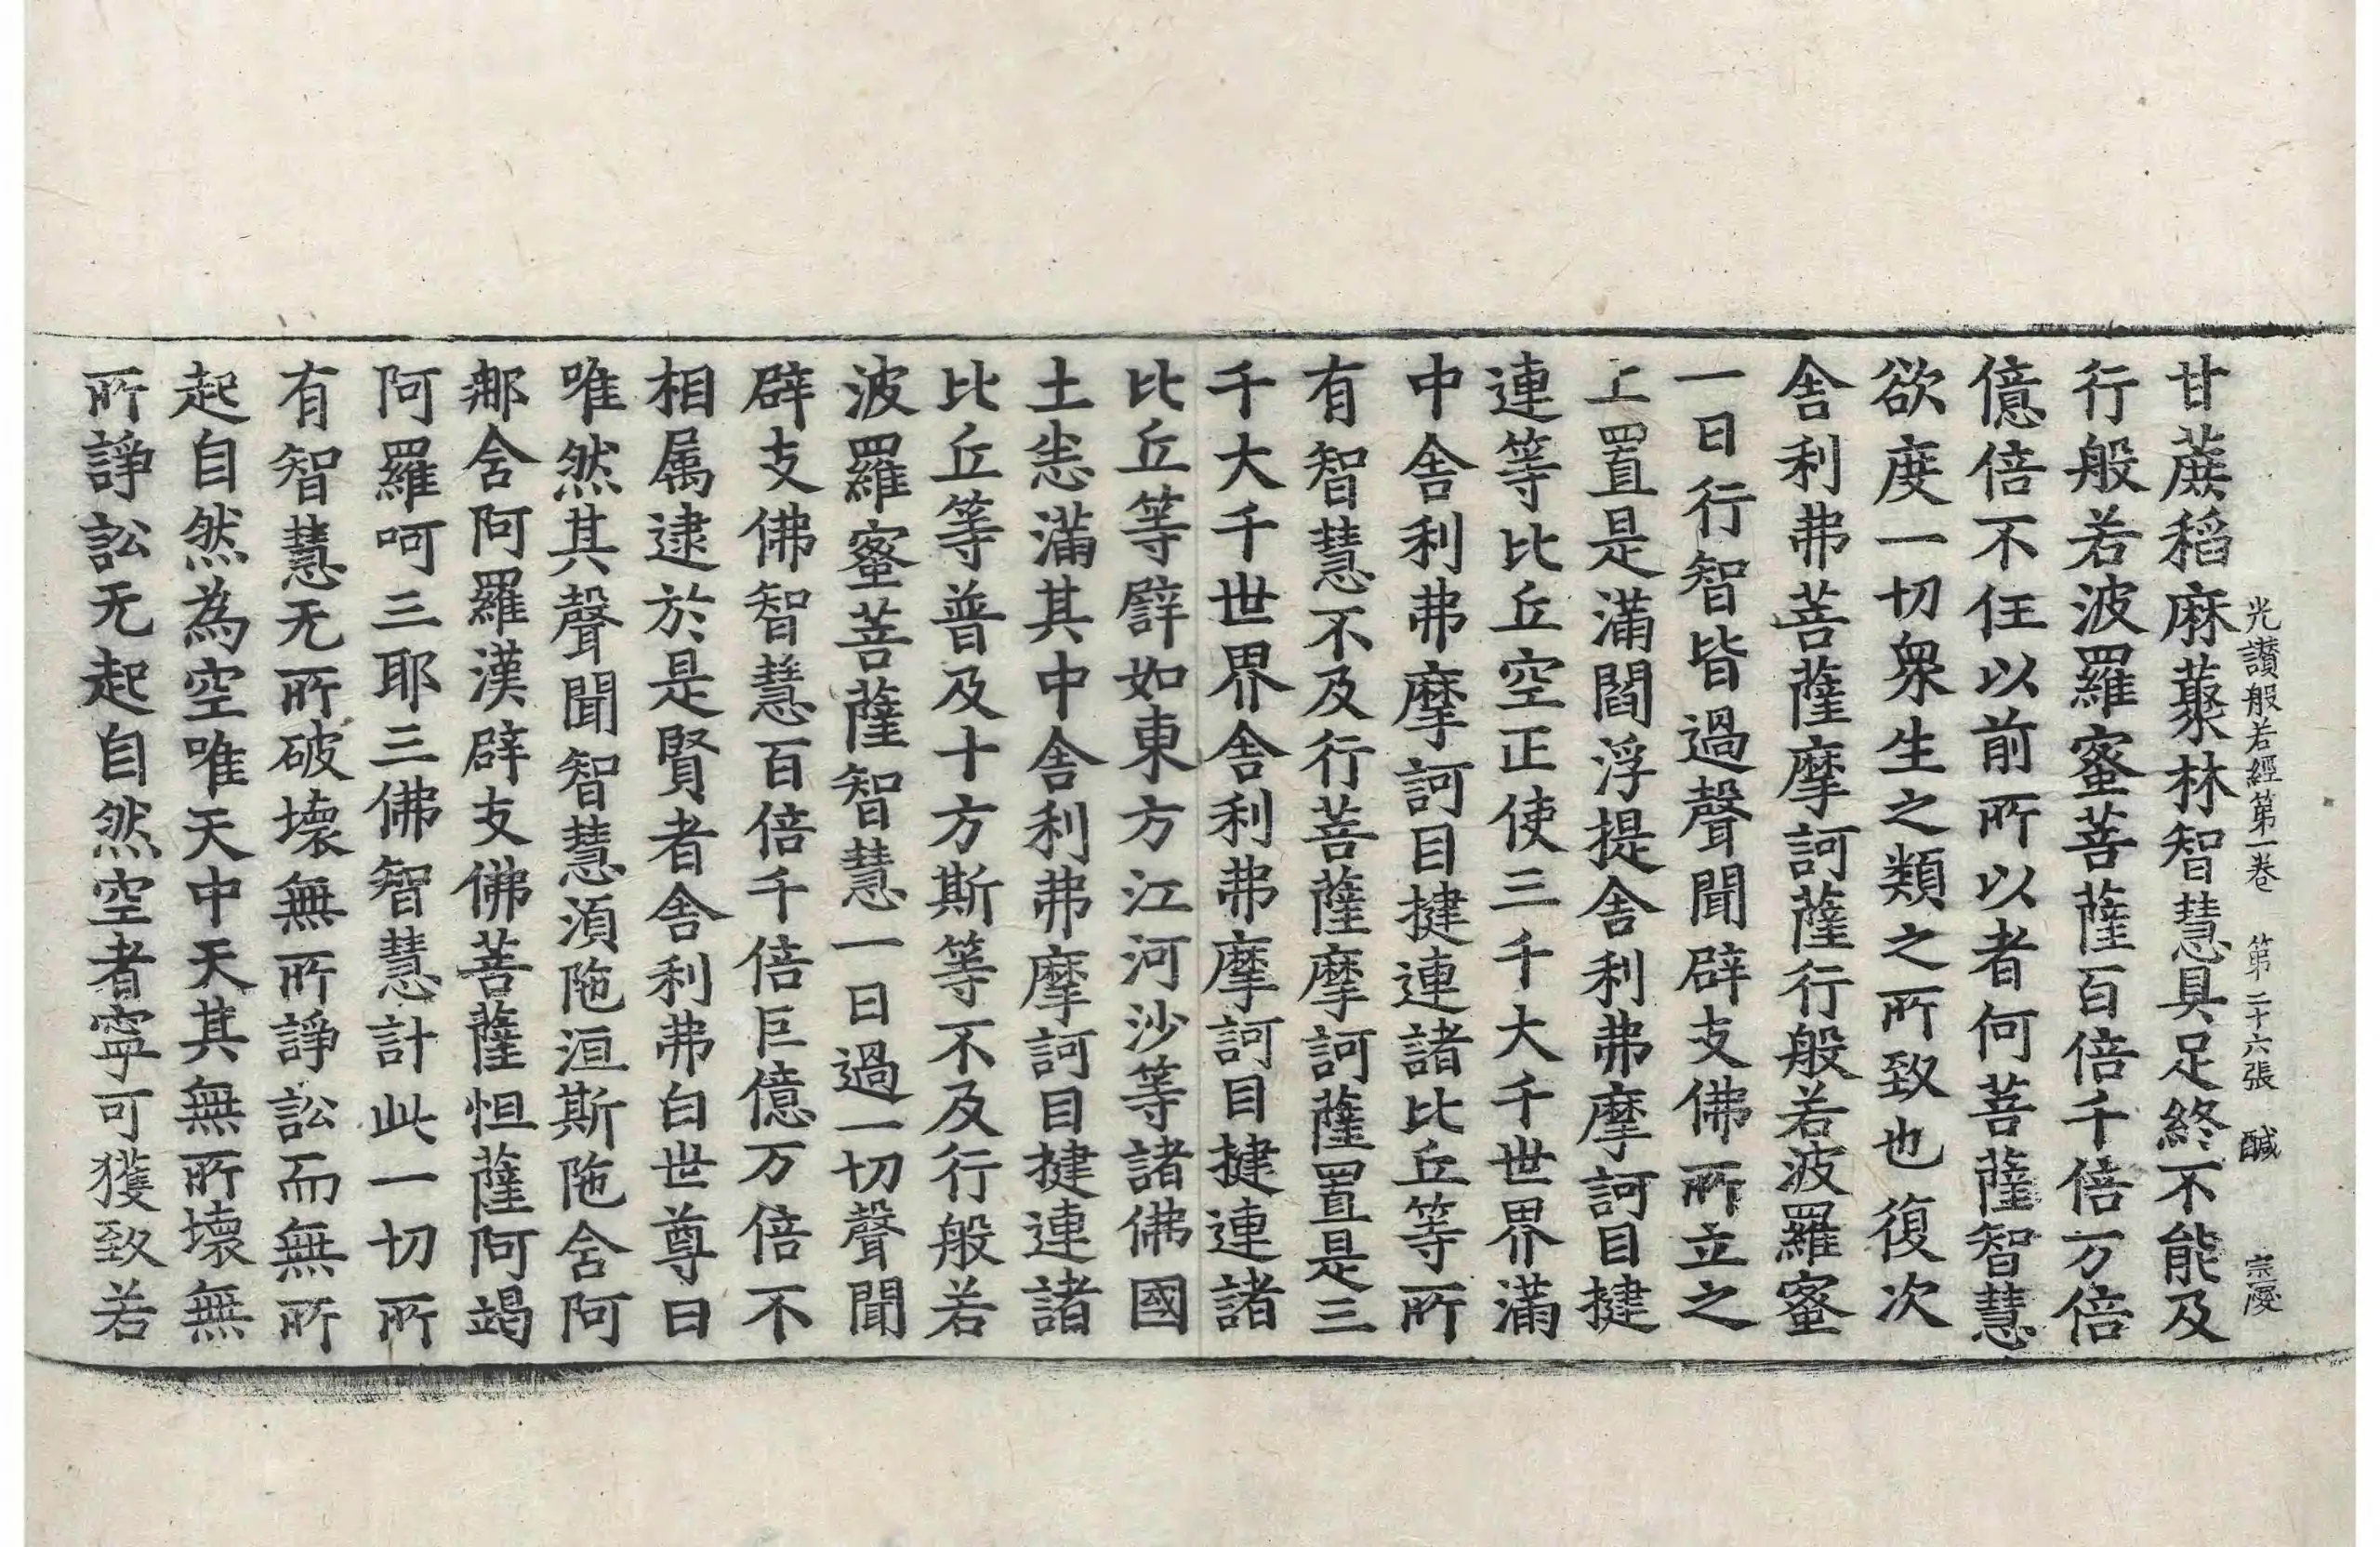 光讃般若經第一卷 第二十六張 醎 宗慶
甘蔗稻麻藂林智慧具足終不能及
行般若波羅蜜菩薩百倍千倍万倍
億倍不任以前所以者何菩薩智慧
欲度一切衆生之類之所致也復次
舎利弗菩薩摩訶薩行般若波羅蜜
一日行智皆過聲聞辟支佛所立之
上置是滿閻浮提舎利弗摩訶目揵
連等比丘空正使三千大千世界滿
中舎利弗摩訶目揵連諸比丘等所
有智慧不及行菩薩摩訶薩置是三
千大千世界舎利弗摩訶目揵連諸
比丘等譬如東方江河沙等諸佛國
土悉滿其中舎利弗摩訶目揵連諸
比丘等普及十方斯等不及行般若
波羅蜜菩薩智慧一日過一切聲聞
辟支佛智慧百倍千倍巨億万倍不
相属逮於是賢者舎利弗白世尊曰
唯然其聲聞智慧湏陁洹斯陁含阿
那含阿羅漢辟支佛菩薩怛薩阿竭
阿羅呵三耶三佛智慧計此一切所
有智慧无所破壞無所諍訟而無所
起自然為空唯天中天其無所壞無
所諍訟无起自然空者寧可獲致若